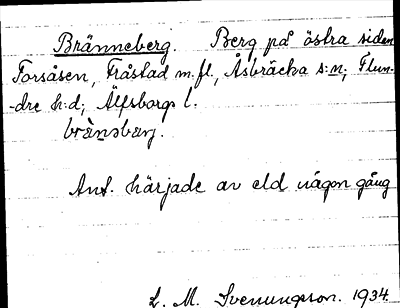 Bränneberg. Berg på östra sidan
Forsåsen, Fråstad m.fl., Åsbräcka s:n; Flun-
-dre h:d; Älfsborgs l.
brä̀nsbärj.
Ant. härjade av eld någon gång
L. M. Svenungsson. 1934